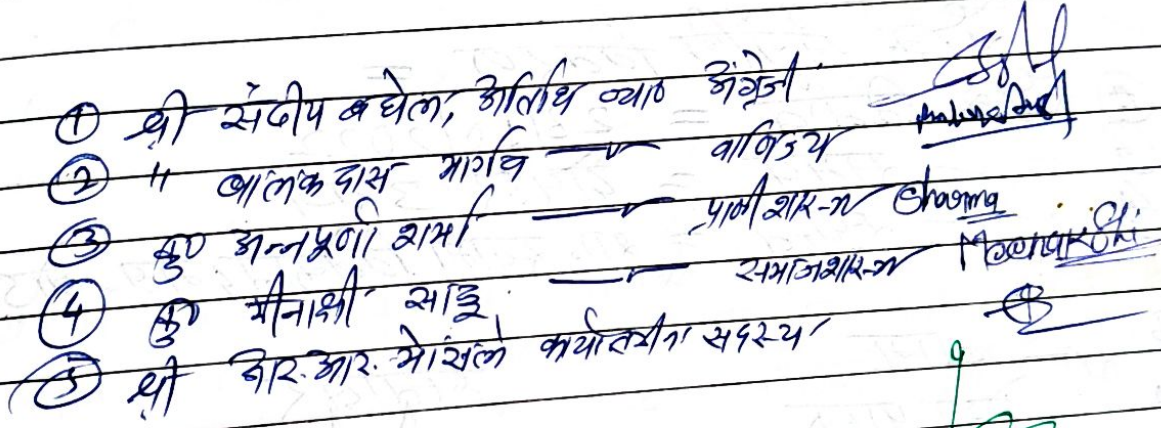 ① श्री संदीप बघेल, अतिथि व्या० अंग्रेजी
② " बालकदास मार्गव —〃— वाणिज्य
③ कु० अन्नपूर्णा शर्मा —〃— प्राणीशास्त्र Sharma
④ कु० मीनाक्षी साहू —〃— समाजशास्त्र Meenakshi
⑤ श्री आर.आर. भोंसले कार्यालयीन सदस्य